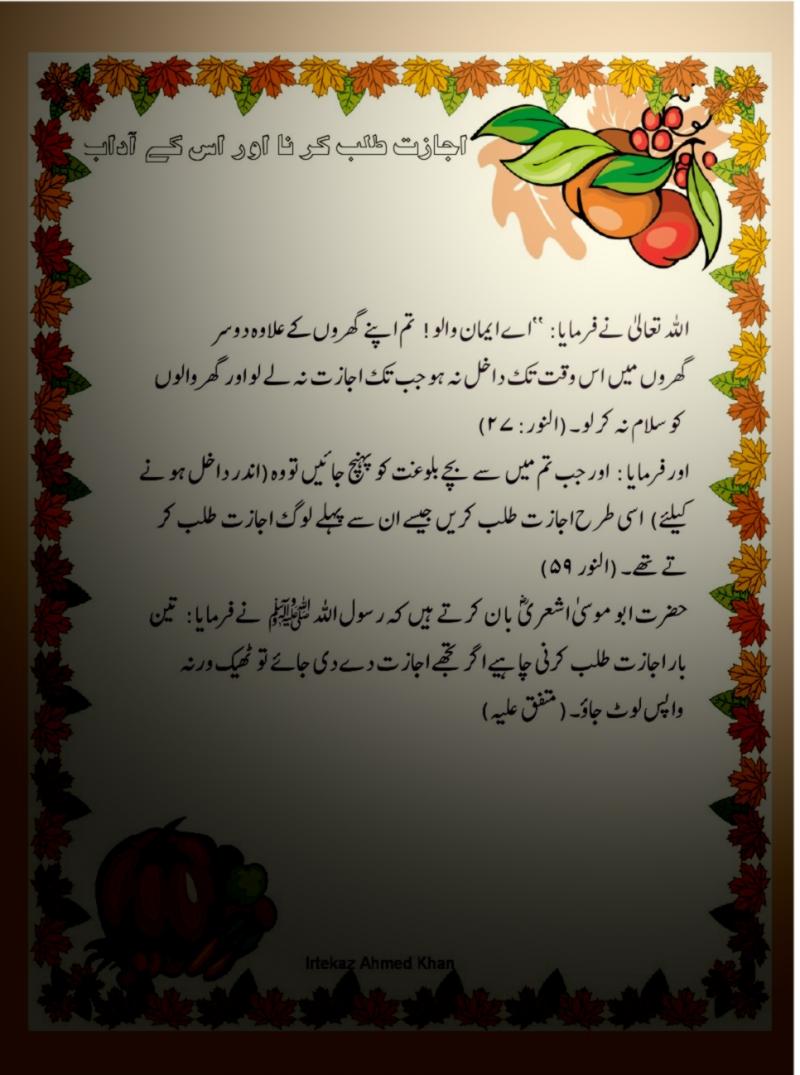 اجازت طلب کر نا اور اس کے آداب
اللہ تعالیٰ نے فرمایا: ‟اے ایمان والو! تم اپنے گھروں کے علاوہ دوسر
گھروں میں اس وقت تک داخل نہ ہو جب تک اجازت نہ لے لو اور گھر والوں
کو سلام نہ کرلو۔ (النور: ۲۷)
اور فرمایا: اور جب تم میں سے بچے بلوغت کو پہنچ جائیں تو وہ (اندر داخل ہو نے
کیلئے) اسی طرح اجازت طلب کریں جیسے ان سے پہلے لوگ اجازت طلب کر
تے تھے۔ (النور ۵۹)
حضرت ابو موسیٰ اشعریؓ بان کرتے ہیں کہ رسول اللہ ﷺ نے فرمایا: تین
بار اجازت طلب کرنی چاہیے اگر تجھے اجازت دے دی جائے تو ٹھیک ورنہ
واپس لوٹ جاؤ۔ (متفق علیہ)
Irtekaz Ahmed Khan